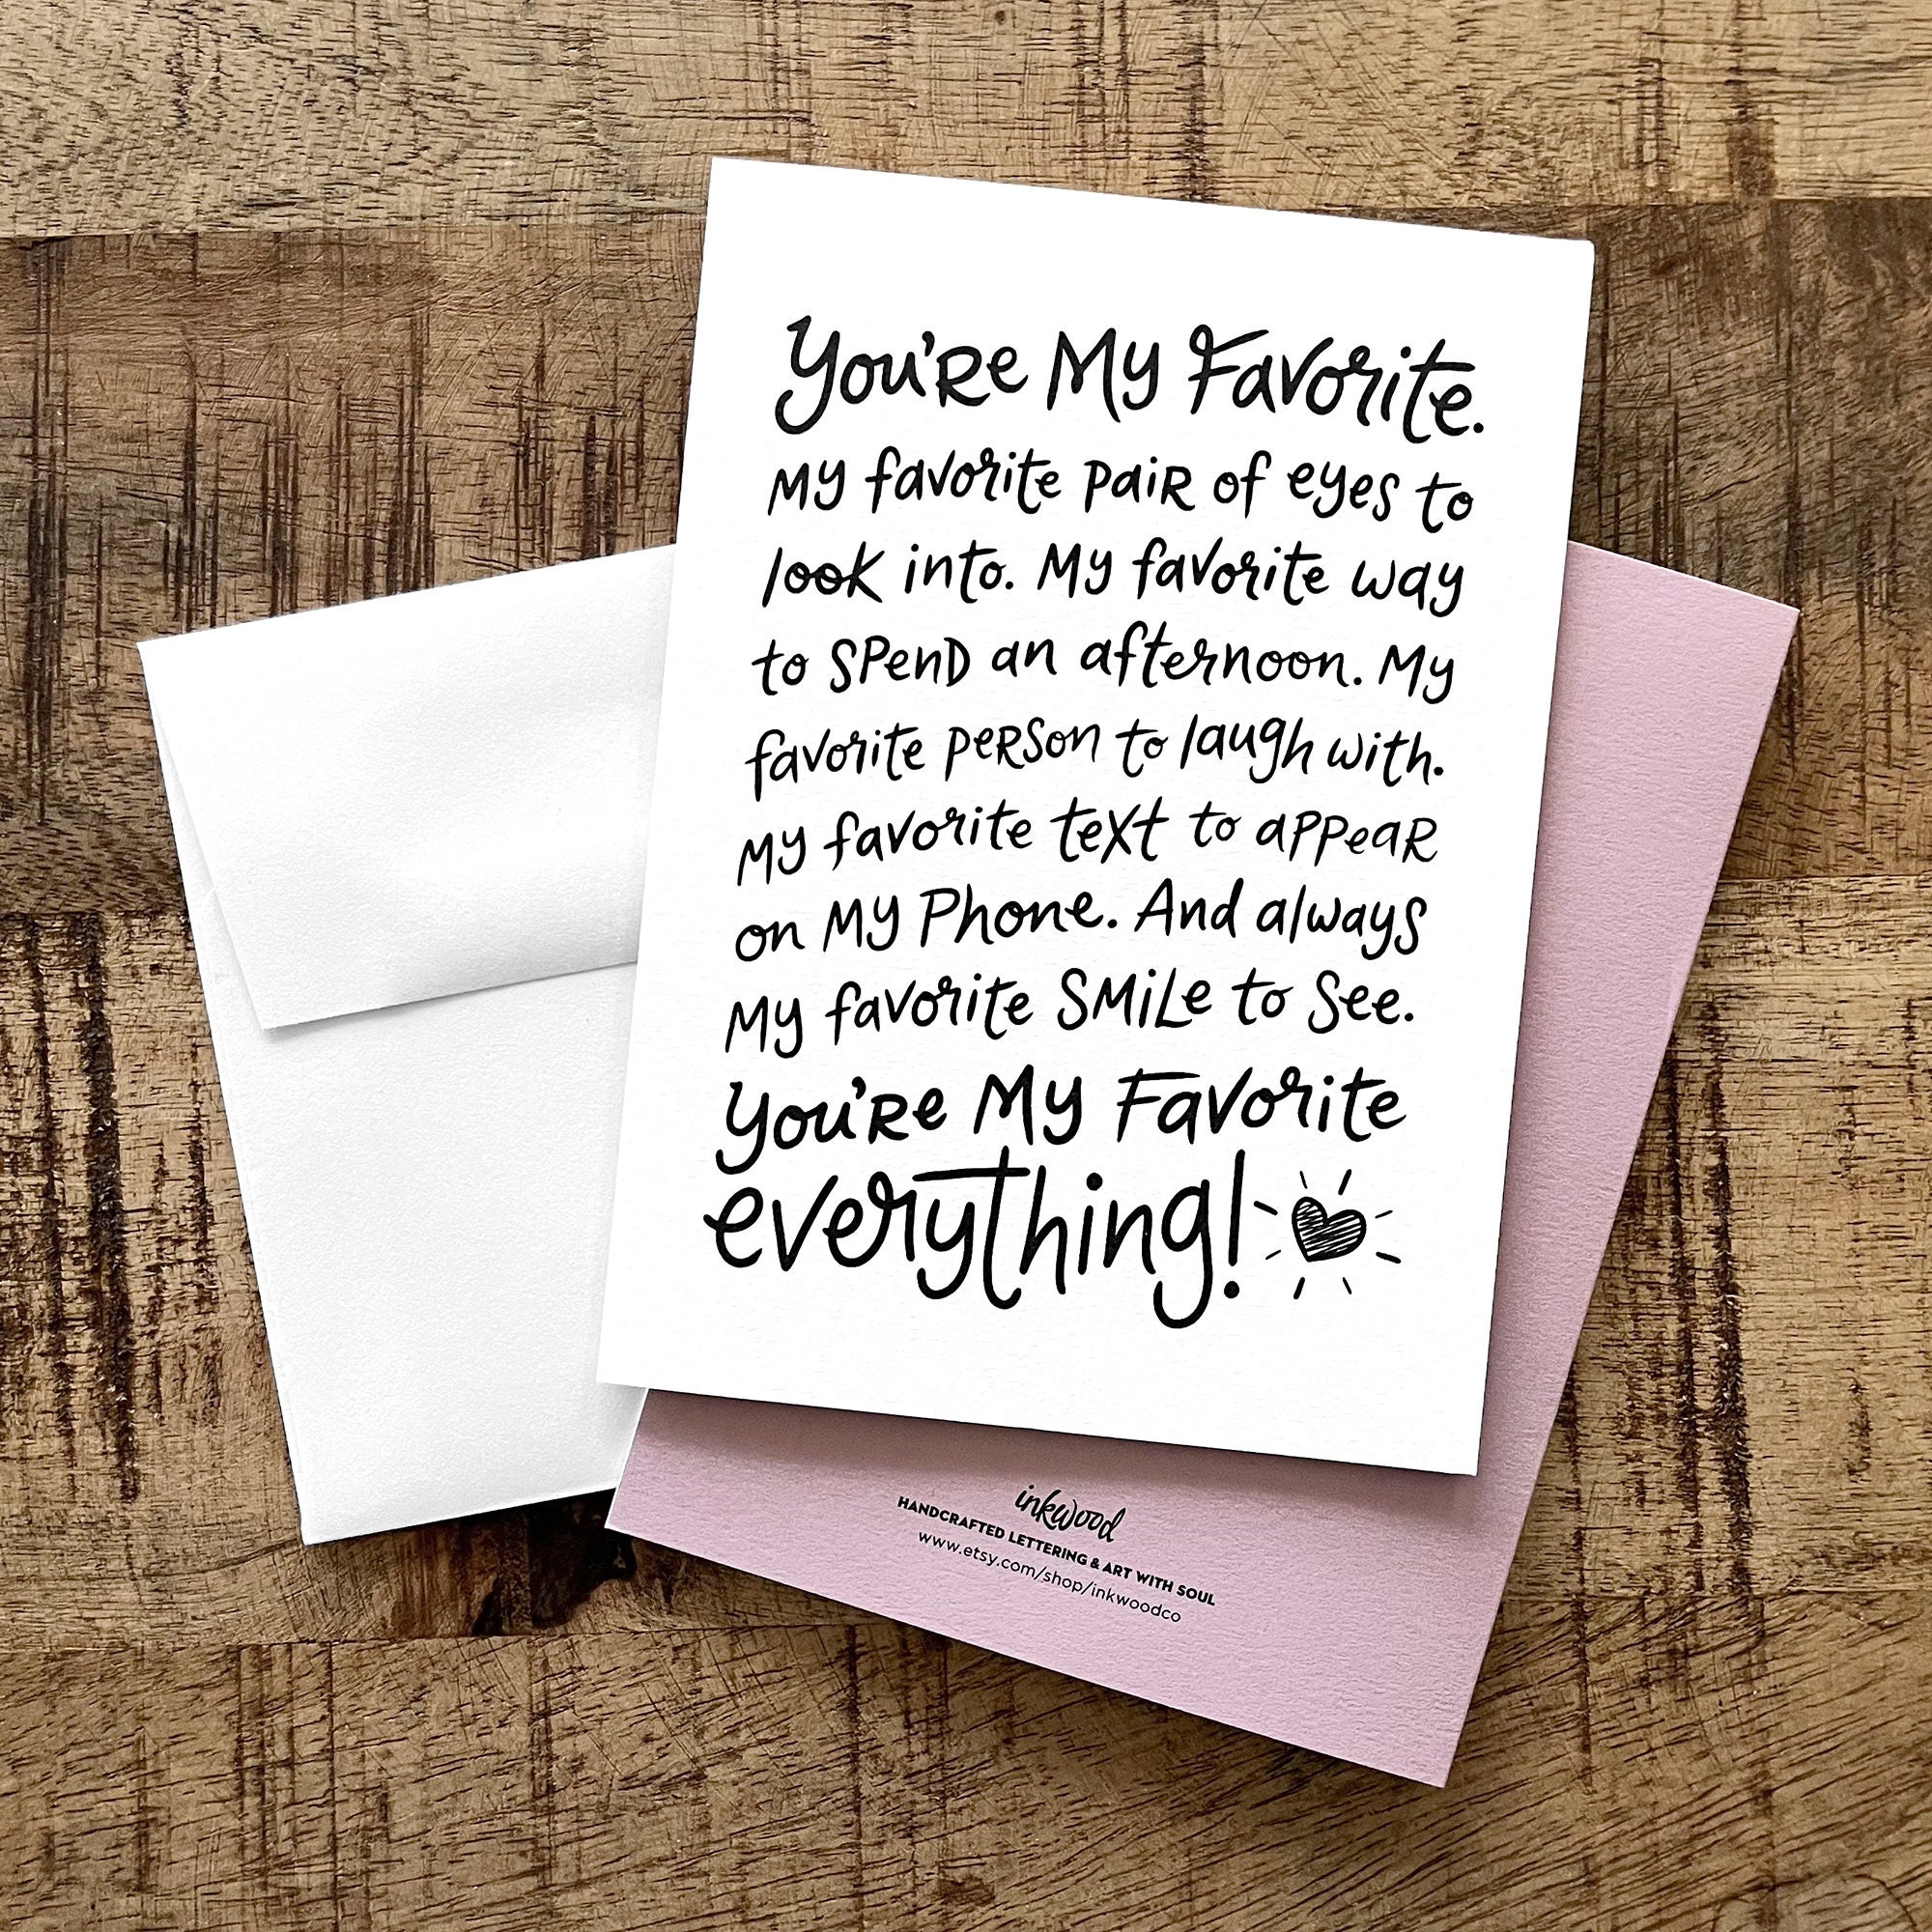 You're My Favorite.
My favorite pair of eyes to
look into. My favorite way
to spend an afternoon. My
favorite person to laugh with.
My favorite text to appear
on My Phone. And always
My favorite smile to see.
You're My Favorite
everything!
inkwood
HANDCRAFTED LETTERING & ART WITH SOUL
www.etsy.com/shop/inkwoodco